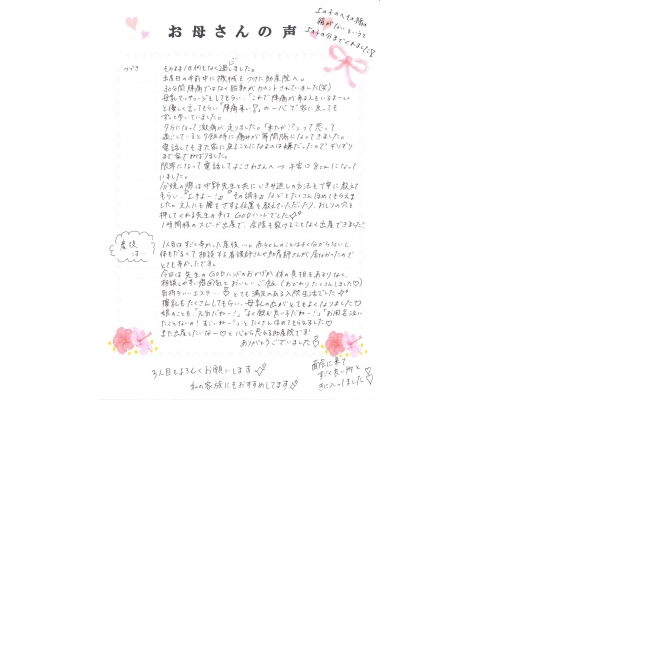 お母さんの声
上の子のへその緒の
箱がないというと
上の子の分までくれました
つづき
そのまま1日何もなく過しました。
出産日の午前中に機械をつけに助産院へ。
30分間陣痛ではなく胎動がカウントされていました(笑)
母乳マッサージをしてもらい、「これで陣痛が来る人もいるよー」
と優しく言ってもらい「陣痛来い!!」の一心で家に戻っても
ずっと歩いていました。
夕方になって激痛が走りました。「来たか!?」って思って
過ごしていると夕飯時に痛みが等間隔になってきました。
電話してもまた家に戻ることになるのは嫌だったのでギリギリ
まで家でねばりました。
限界になって電話して
いました。
分娩の際は中野先生と共にいきみ逃しの方法も丁寧に教えて
もらい、「上手よー!」「その調子」などとたくさんほめてもらえま
した。主人にも腰をさする位置を教えていただいたり、おしりの穴を
押してくれる先生の手はGODハンドでした
1時間程のスピード出産で、会陰も裂けることなく出産できました
産後
は…
1人目はすごく辛かった産後…。赤ちゃんのことはよく分からないし、
体もだるくて相談する看護師さんや助産師さんが居なかったので
とても辛かったです。
今回は先生のGODハンドのおかげか、体の負担もあまりなく、
相談しやすい雰囲気とおいしいご飯(おかわりたくさんしました♡)
気持ちいいエステ… とても満足のある入院生活でした
授乳もたくさんしてもらい、母乳の出がとてもよくなりました♡
娘のことも「元気だねー!」「よく飲む良い子だねー!」「お風呂泣い
たことないの!すごいねー!」とたくさんほめてもらえました♡
また出産したいなー♡と心から思える助産院です
ありがとうございました
3人目もよろしくお願いします
私の家族にもおすすめしてます
面会に来て
すごく良い所と
気に入ってました♡